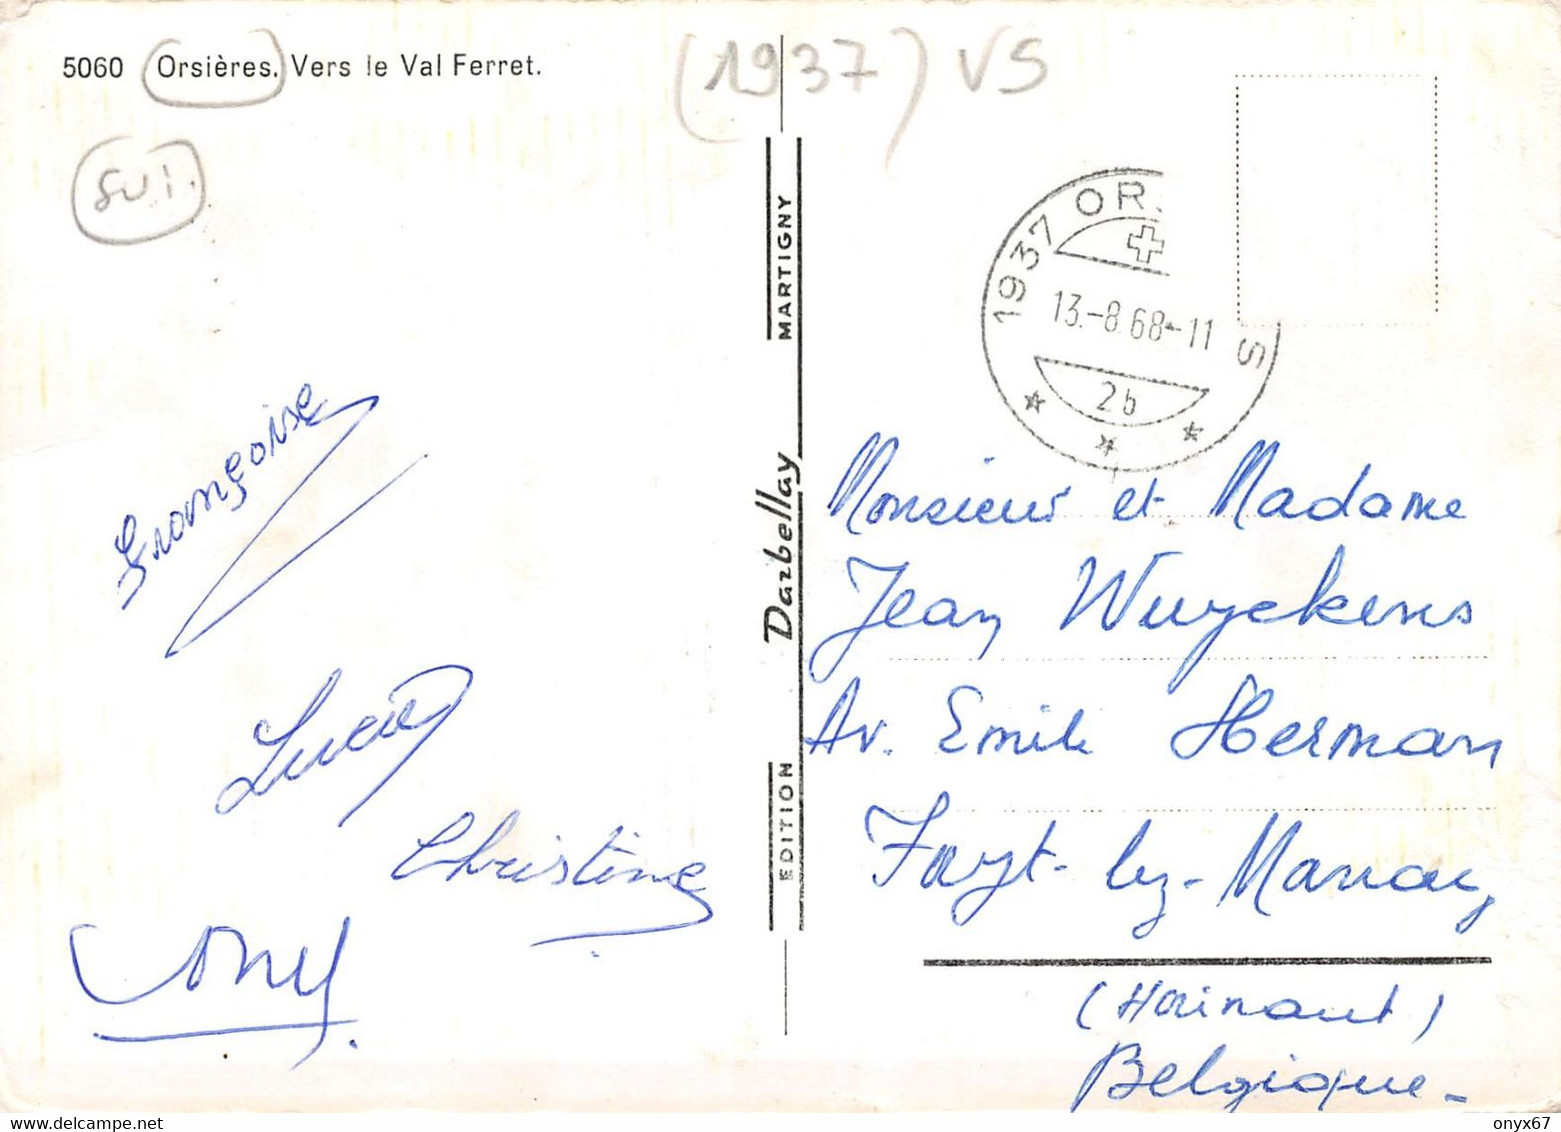 5060 Orsières. Vers le Val Ferret.
(1937) VS
SUI.
1937 OR. S
13.-8.68-11
2b
MARTIGNY
Darbellay
EDITION
Françoise
Lucie
Christine
Monsieur et Madame
Jean Wuyckens
Av. Emile Herman
Fayt-lez-Manage
(Hainaut)
Belgique-
www.delcampe.net
onyx67